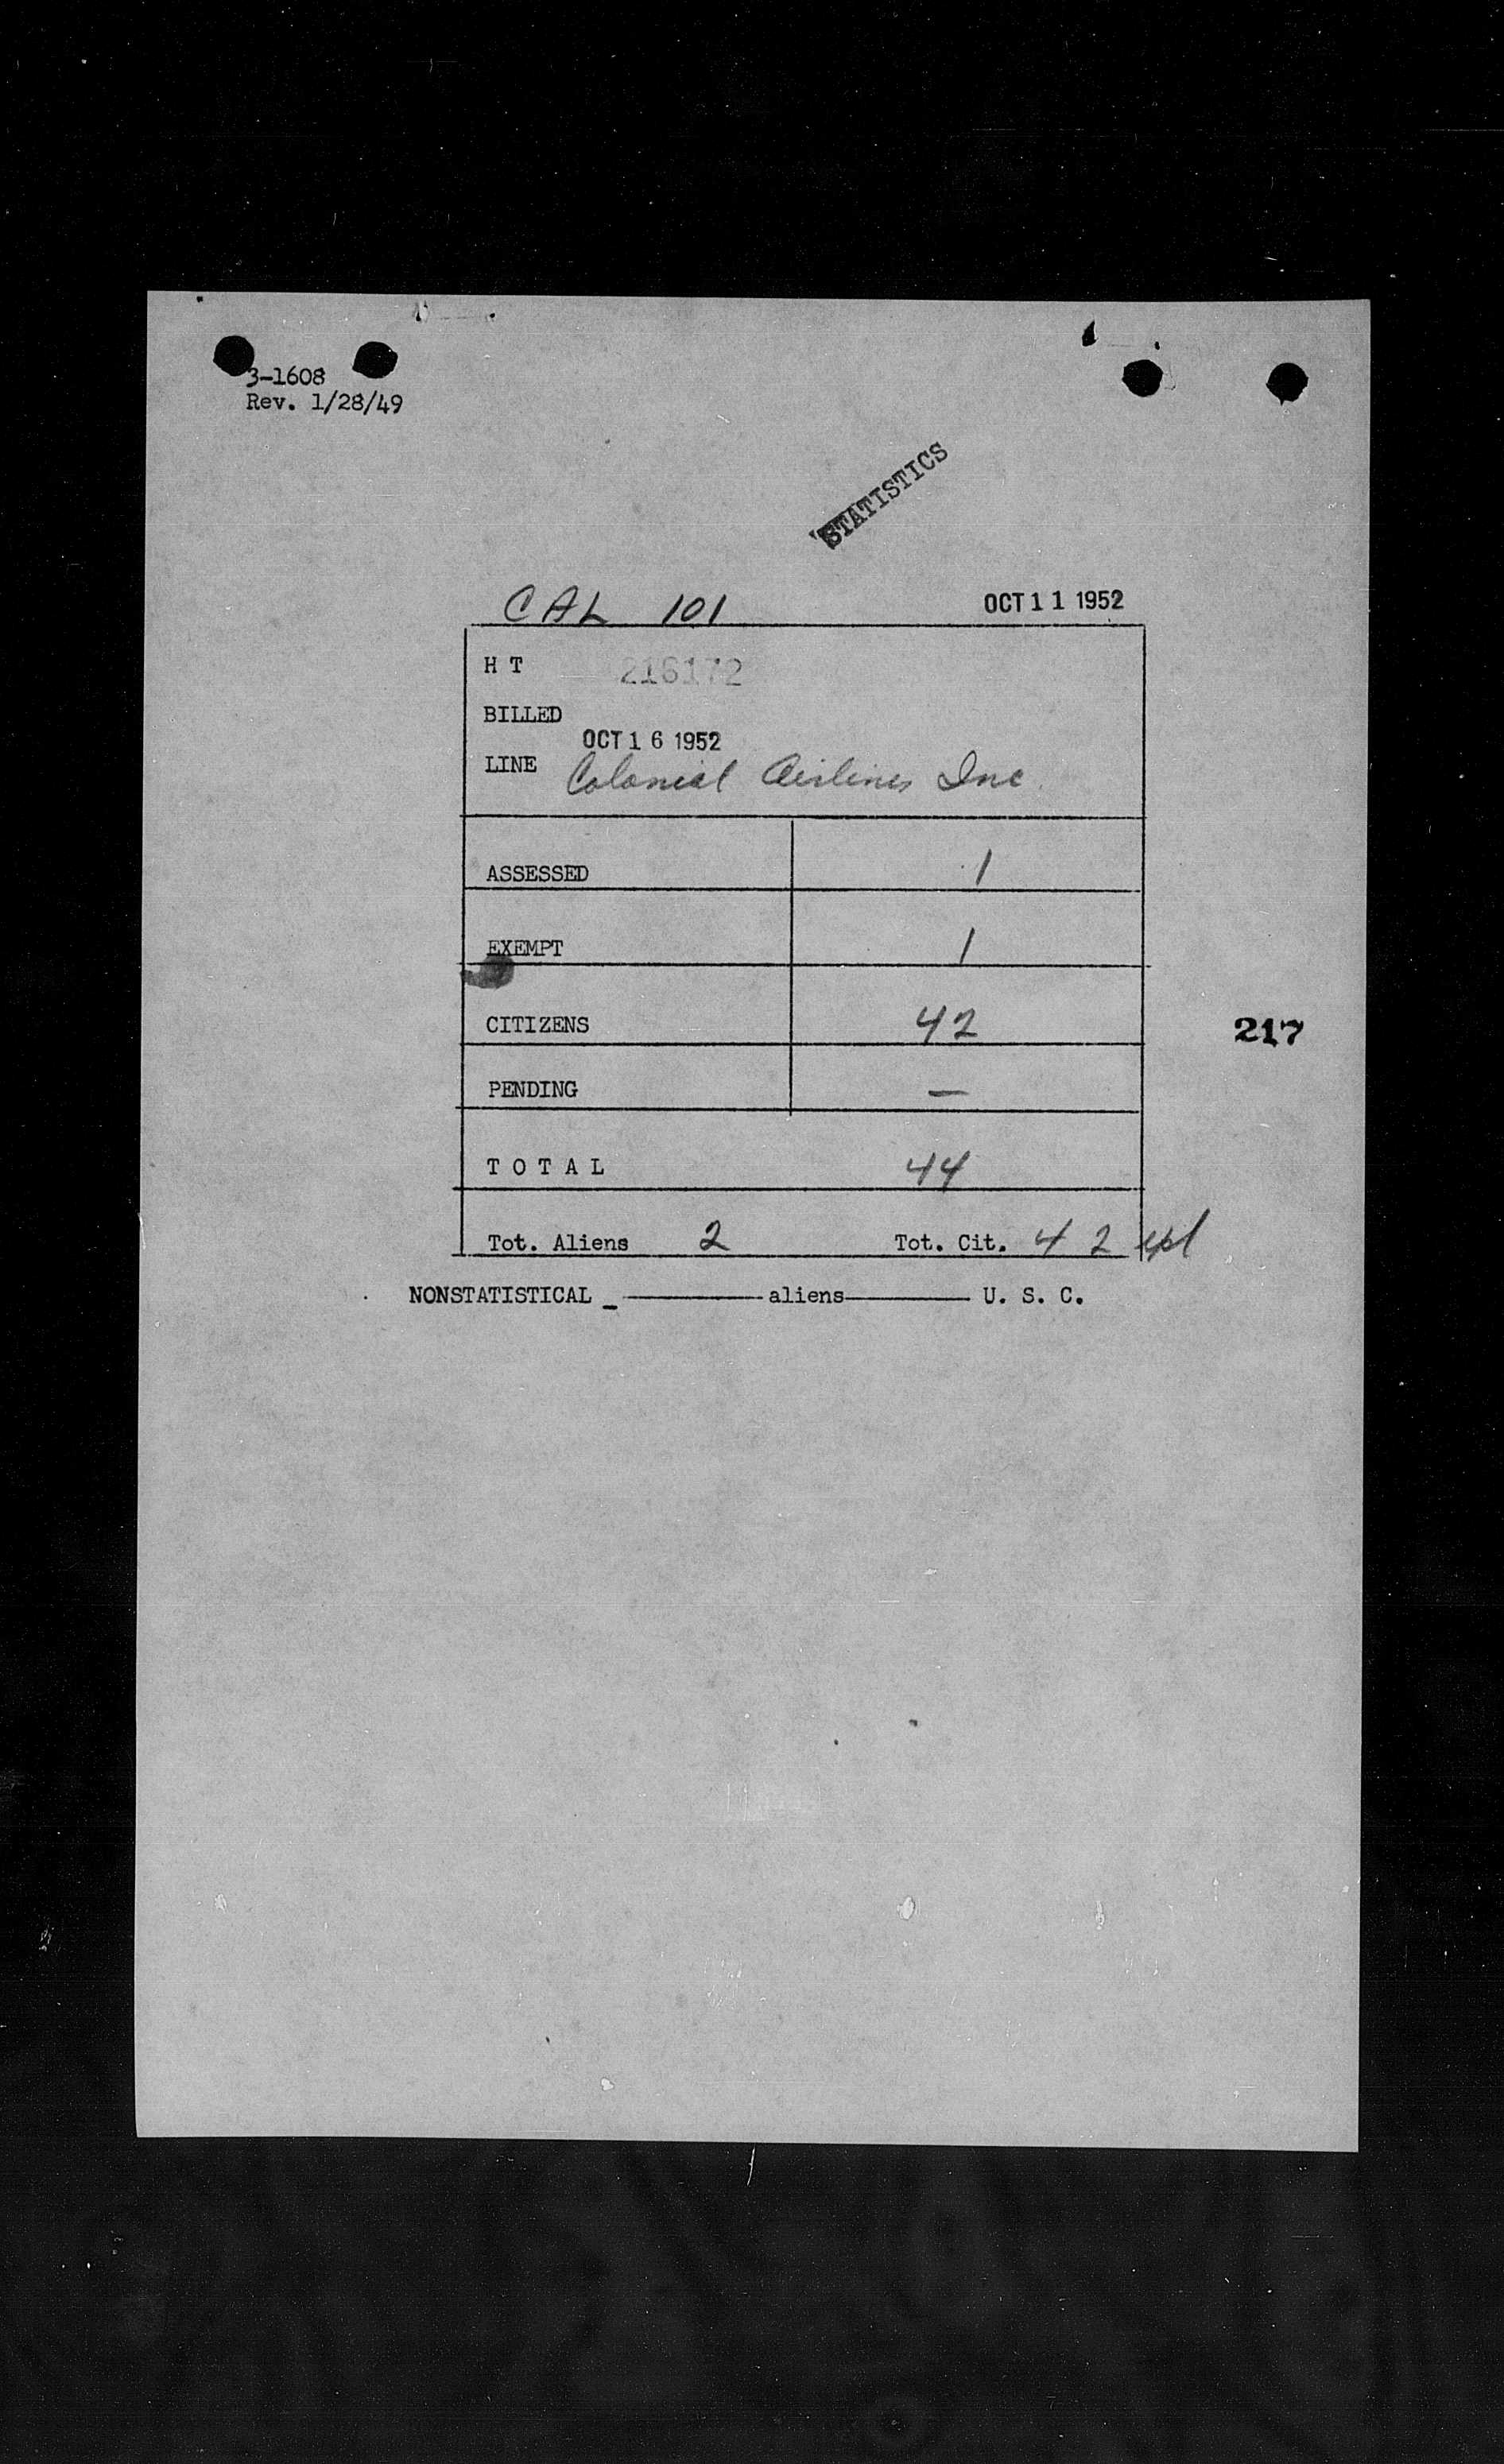 3-1608
Rev. 1/28/49
STATISTICS
CAL 101 OCT 11 1952
H T 216172
BILLED
OCT 16 1952
LINE Colonial Airlines Inc.
ASSESSED 1
EXEMPT 1
CITIZENS 42
217
PENDING —
T O T A L 44
Tot. Aliens 2 Tot. Cit. 42
NONSTATISTICAL _ ———— aliens ———— U. S. C.